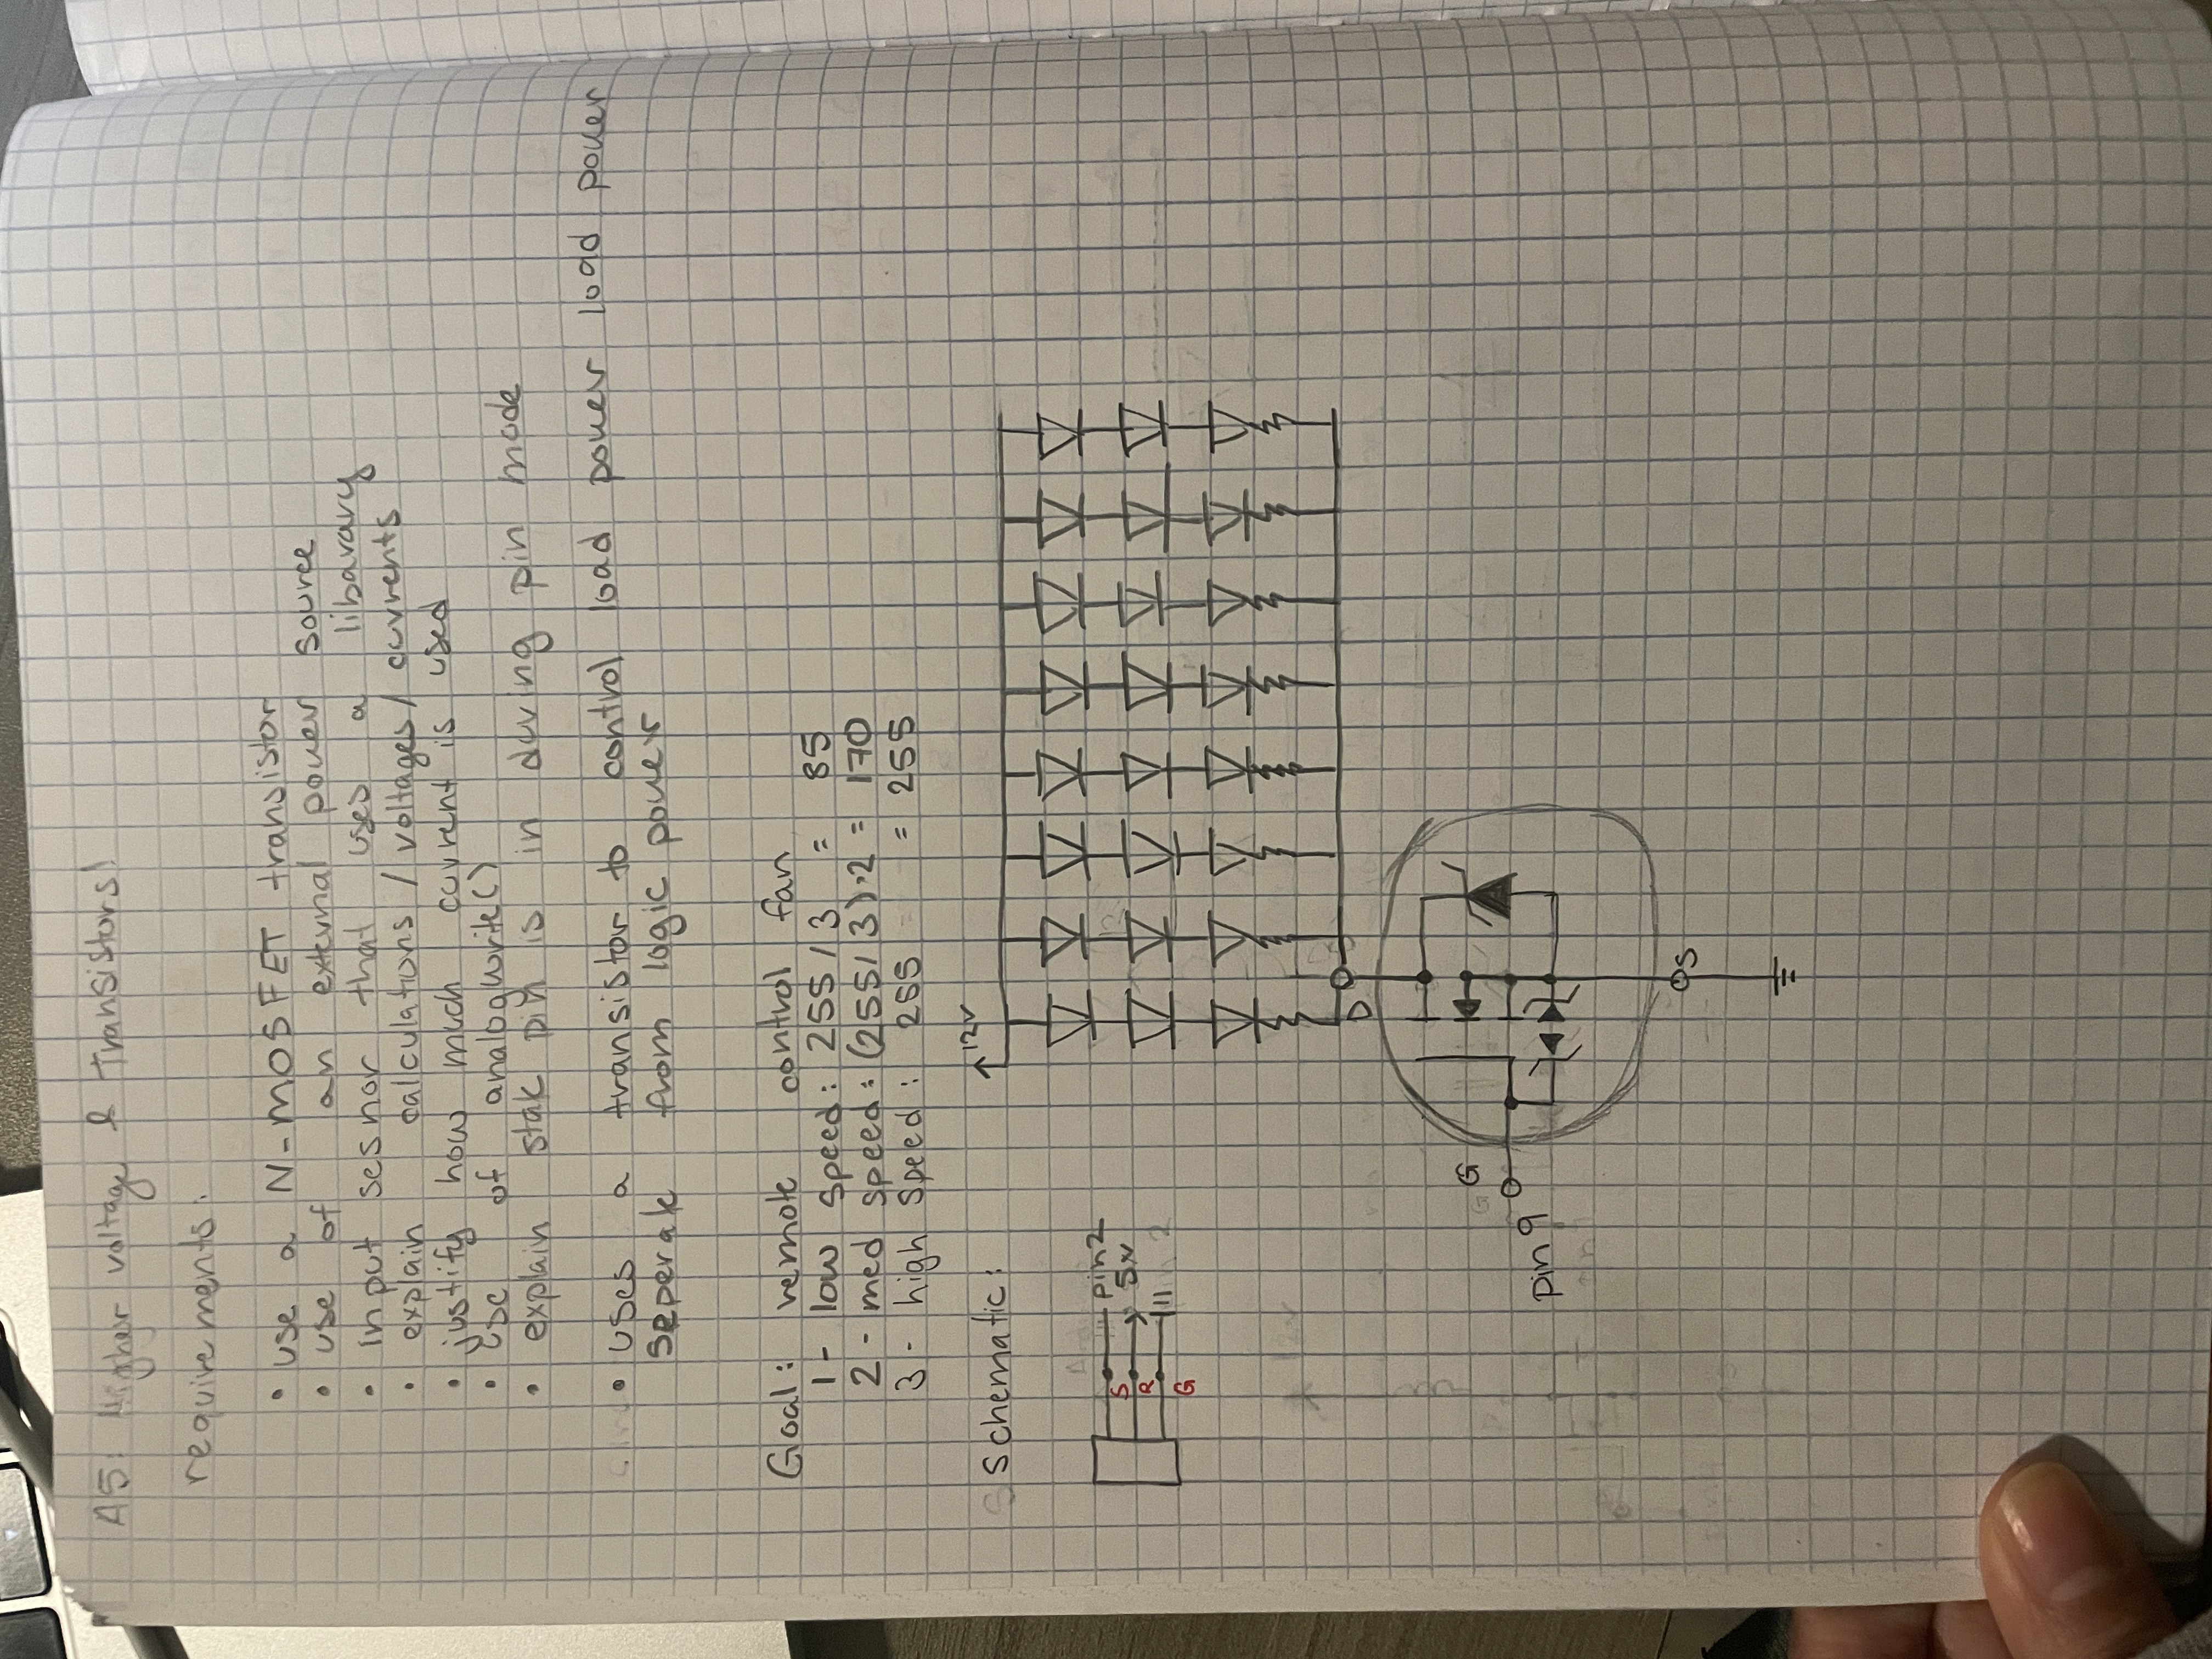 A5: Higher voltage & Transistors!
requirements:
• use a N-MOSFET transistor
• use of an external power source
• input sesnor that uses a libarary
• explain calculations / voltages / currents
• justify how much current is used
• use of analogwrite()
• explain state pin is in during pin mode
• uses a transistor to control load power load power
seperate from logic power
Goal: remote control fan
1 - low speed: 255 / 3 = 85
2 - med speed: (255 / 3) · 2 = 170
3 - high speed: 255 = 255
Schematic:
12v
pin2
S
5v
R
G
D
G
pin 9
S